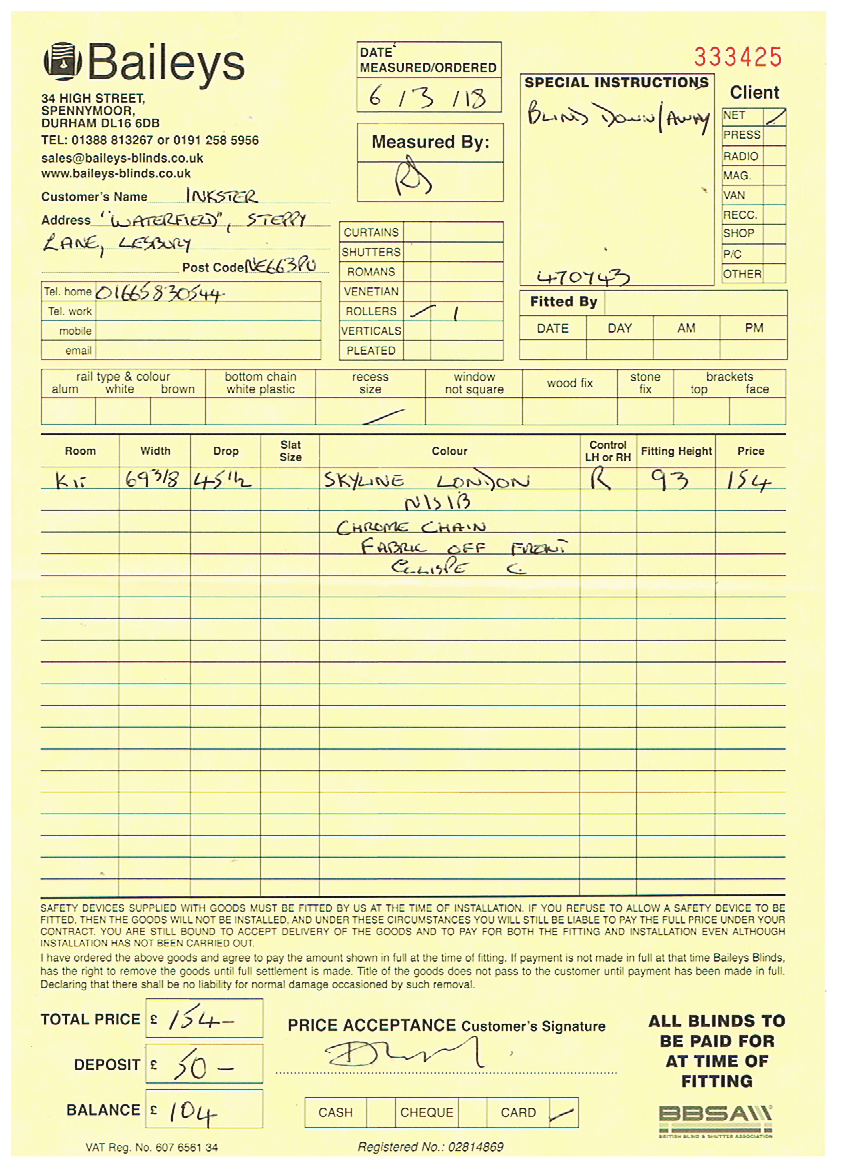 Baileys
34 HIGH STREET,
SPENNYMOOR,
DURHAM DL16 6DB
TEL: 01388 813267 or 0191 258 5956
sales@baileys-blinds.co.uk
www.baileys-blinds.co.uk
DATE
MEASURED/ORDERED
6 / 3 / 18
Measured By:
333425
SPECIAL INSTRUCTIONS
BLIND DOWN/AWAY
470743
Client
NET ✓
PRESS
RADIO
MAG.
VAN
RECC.
SHOP
P/C
OTHER
Customer's Name INKSTER
Address "WATERFIELD", STEPPY
LANE, LESBURY
Post Code NE663PU
Tel. home 01665830544
Tel. work
mobile
email
CURTAINS
SHUTTERS
ROMANS
VENETIAN
ROLLERS ✓ 1
VERTICALS
PLEATED
Fitted By
DATE DAY AM PM
rail type & colour bottom chain recess window wood fix stone brackets
alum white brown white plastic size not square fix top face
Room Width Drop Slat Size Colour Control LH or RH Fitting Height Price
KIT 69 3/8 45 1/2 SKYLINE LONDON R 93 154
N/S/B
CHROME CHAIN
FABRIC OFF FRONT
ELLISPE C
SAFETY DEVICES SUPPLIED WITH GOODS MUST BE FITTED BY US AT THE TIME OF INSTALLATION. IF YOU REFUSE TO ALLOW A SAFETY DEVICE TO BE
FITTED, THEN THE GOODS WILL NOT BE INSTALLED, AND UNDER THESE CIRCUMSTANCES YOU WILL STILL BE LIABLE TO PAY THE FULL PRICE UNDER YOUR
CONTRACT. YOU ARE STILL BOUND TO ACCEPT DELIVERY OF THE GOODS AND TO PAY FOR BOTH THE FITTING AND INSTALLATION EVEN ALTHOUGH
INSTALLATION HAS NOT BEEN CARRIED OUT.
I have ordered the above goods and agree to pay the amount shown in full at the time of fitting. If payment is not made in full at that time Baileys Blinds,
has the right to remove the goods until full settlement is made. Title of the goods does not pass to the customer until payment has been made in full.
Declaring that there shall be no liability for normal damage occasioned by such removal.
TOTAL PRICE £ 154-
DEPOSIT £ 50-
BALANCE £ 104
PRICE ACCEPTANCE Customer's Signature
CASH CHEQUE CARD ✓
ALL BLINDS TO
BE PAID FOR
AT TIME OF
FITTING
BBSA
BRITISH BLIND & SHUTTER ASSOCIATION
VAT Reg. No. 607 6561 34
Registered No.: 02814869